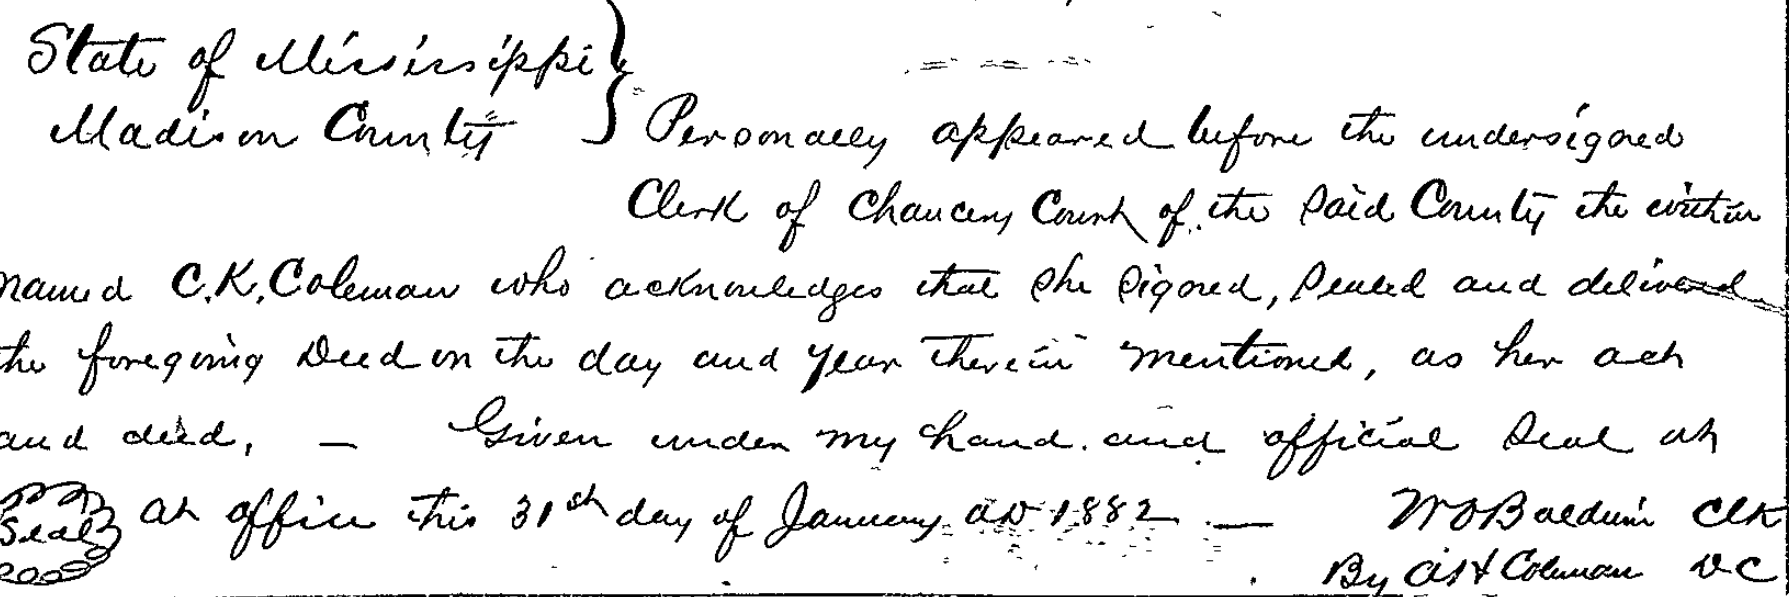 State of Mississippi }
Madison County } Personally appeared before the undersigned
Clerk of Chancery Court of the said County the within
named C.K. Coleman who acknowledges that she signed, sealed and delivered
the foregoing Deed on the day and year therein mentioned, as her act
and deed, — Given under my hand and official seal at
Seal at office this 31st day of January AD 1882 — W O Baldwin Clk
By A H Coleman D C